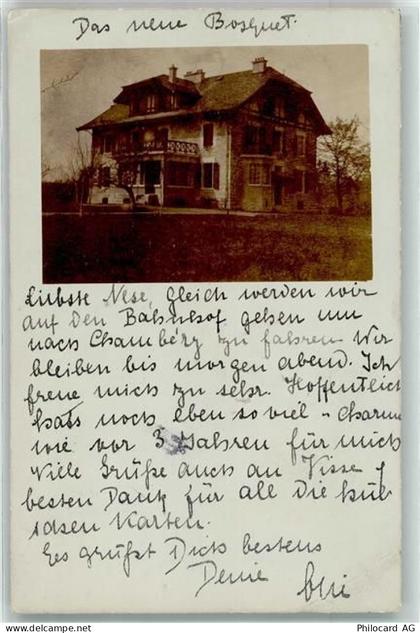 Das neue Bosquet.
Liebste Nese, Gleich werden wir
auf den Bahnhof gehen um
nach Chambéry zu fahren Wir
bleiben bis morgen abend. Ich
freue mich zu sehr. Hoffentlich
hats noch eben so viel Charme
wie vor 3 Jahren für mich
Viele Grüße auch an
besten Dank für all die hüb
schen Karten.
Es grüßt Dich bestens
Deine
www.ansichtskartenversand.com Philocard AG